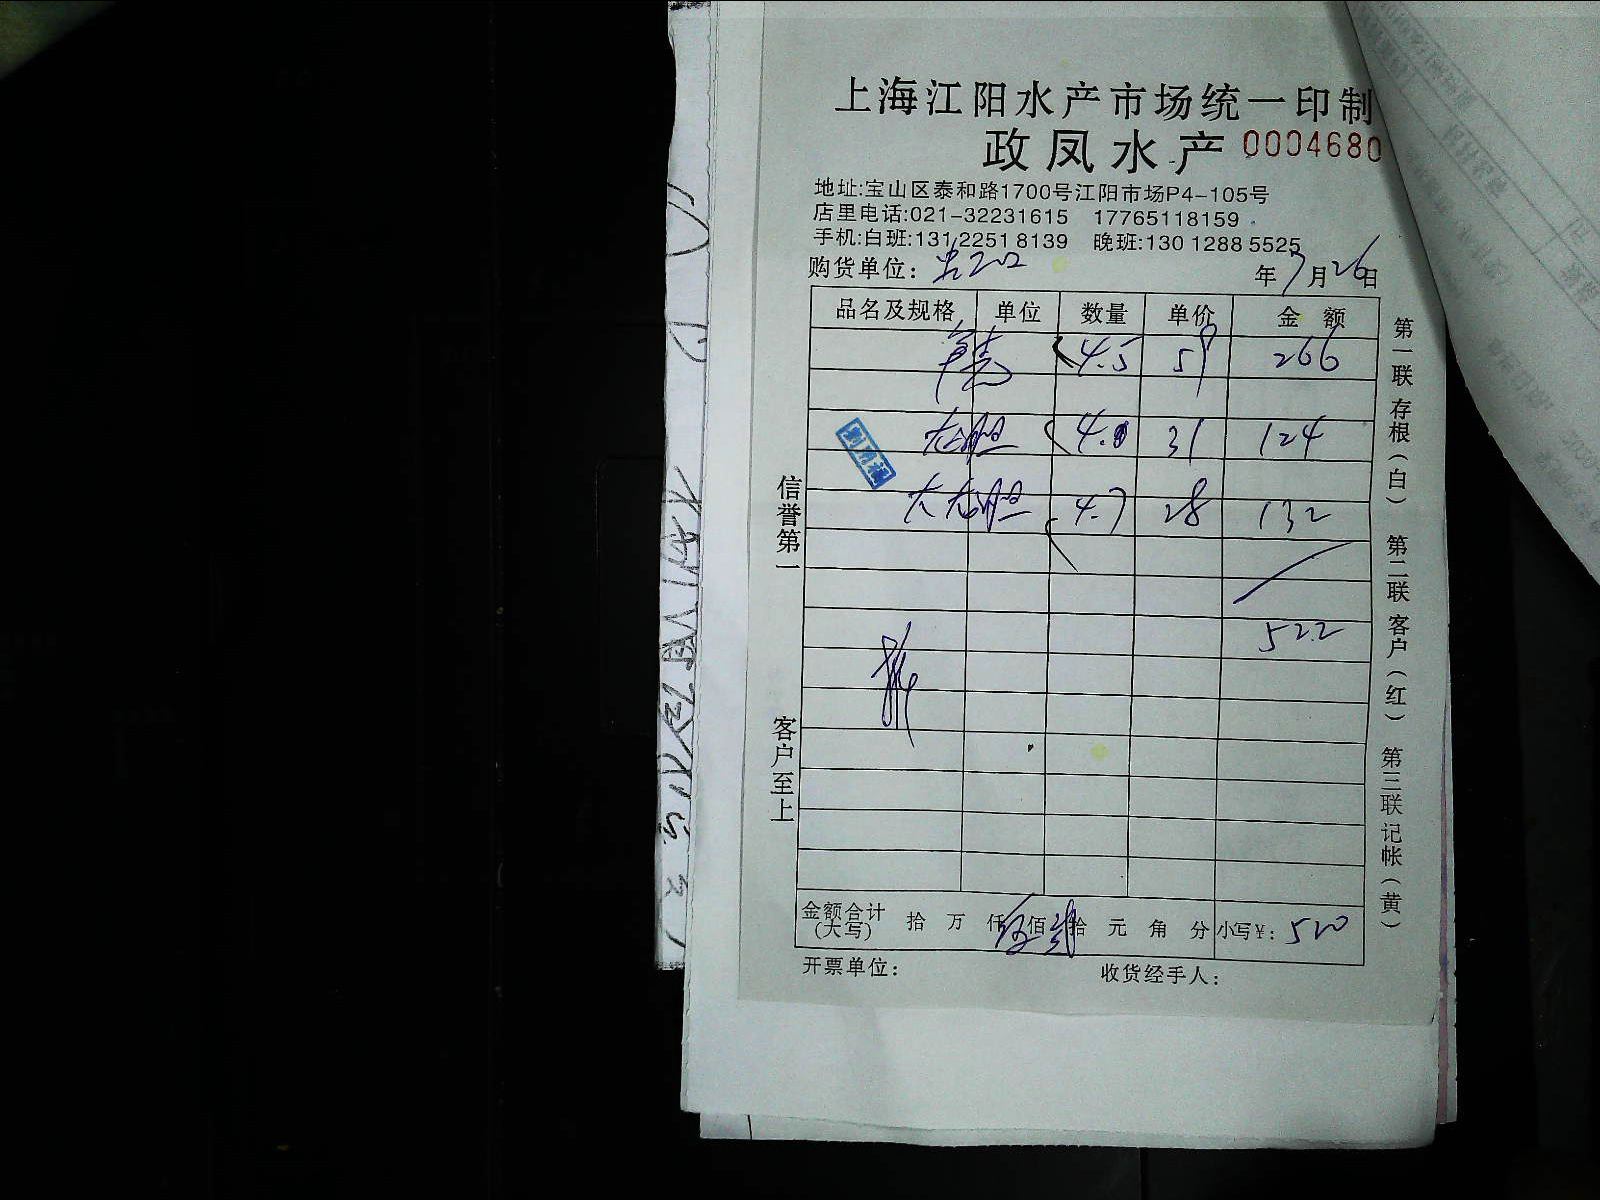 上海江阳水产市场统一印制
政凤水产 0004680
地址:宝山区泰和路1700号江阳市场P4-105号
店里电话:021-32231615 17765118159
手机:白班:131 2251 8139 晚班:130 1288 5525
购货单位: 年7月26日
品名及规格 单位 数量 单价 金额
4.5 59 266
4.0 31 124
大 4.7 28 132
522
金额合计(大写) 拾 万 仟伍佰贰拾 元 角 分 小写¥: 520
开票单位: 收货经手人:
信誉第一 客户至上
第一联 存根(白) 第二联 客户(红) 第三联 记帐(黄)